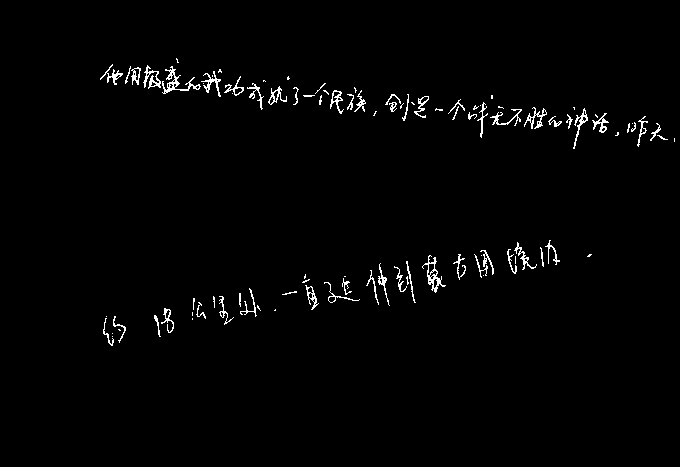 他用极盛的成就了一个民族，创造一个战无不胜的神话，昨天，
约18公里处，一直延伸到蒙古国境内.